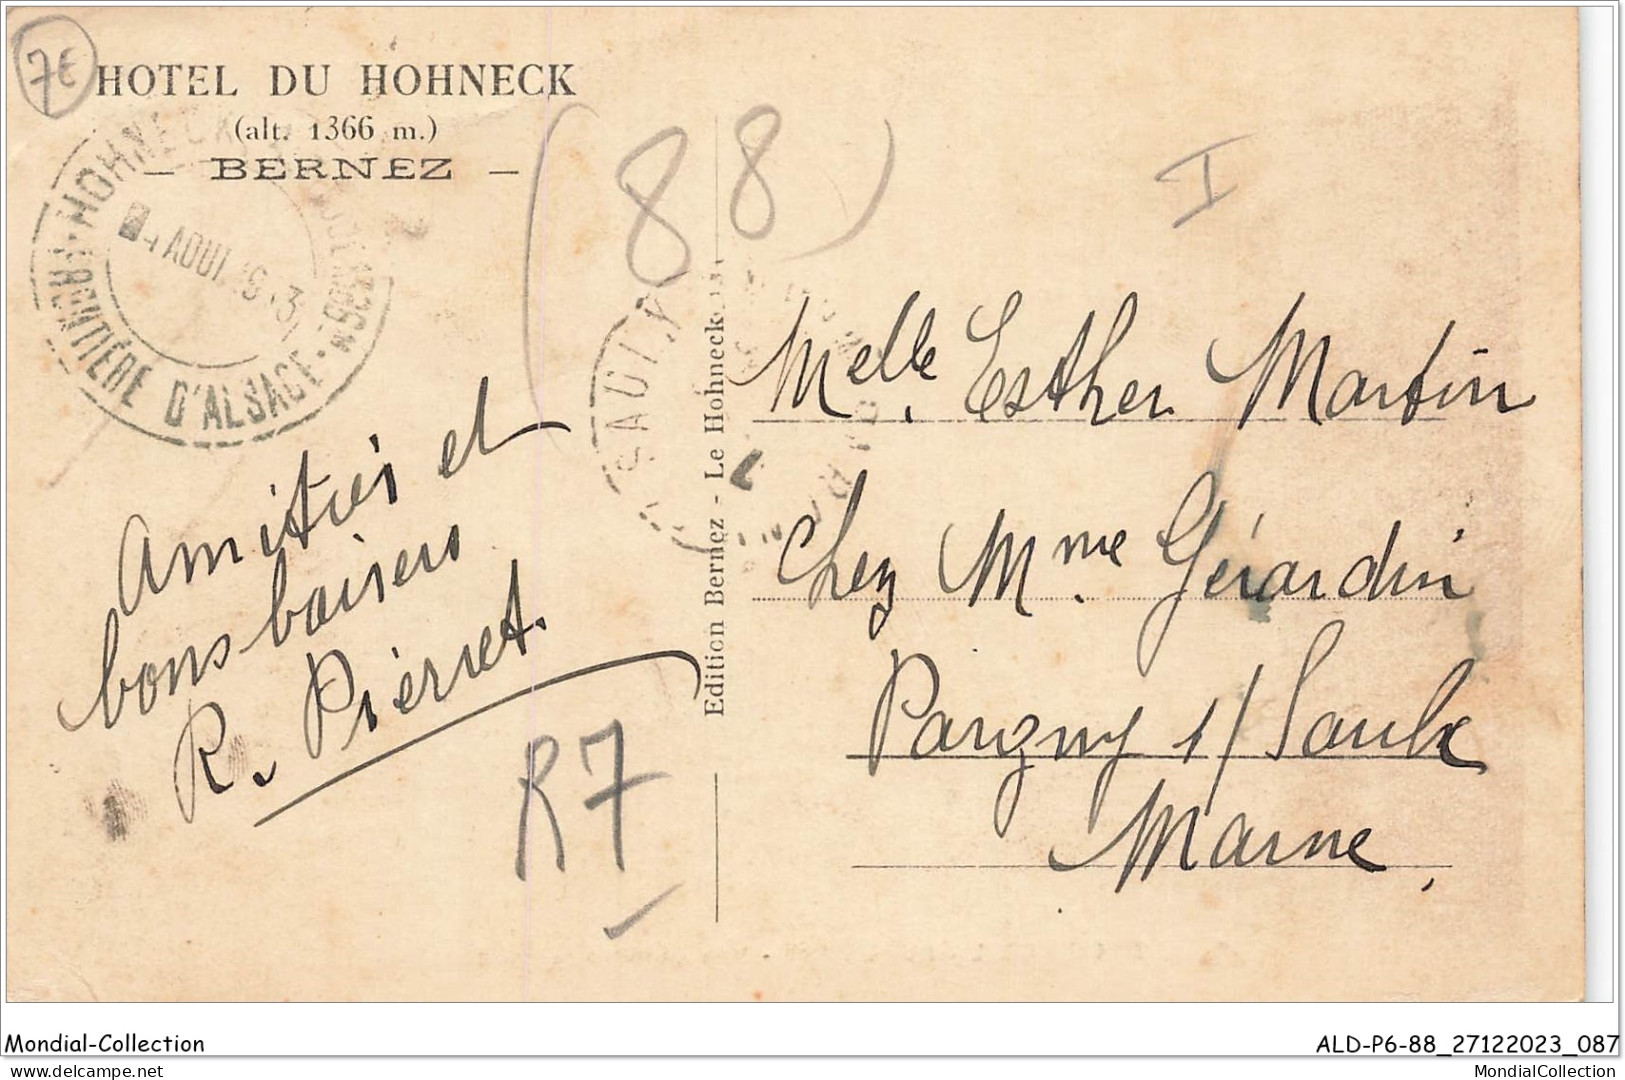 7€
HOTEL DU HOHNECK
(alt. 1366 m.)
— BERNEZ —
HOHNECK
4 AOUT
FRONTIÈRE D'ALSACE
(88)
I
Amitiés et
bons baisers
R. Pierret.
R7
Edition Bernez - Le Hohneck
Melle. Esther Martin
Chez Mme. Gérardin
Pargny s/ Saulx
Marne,
Mondial-Collection
ALD-P6-88_27122023_087
mondialcollection.net
MondialCollection